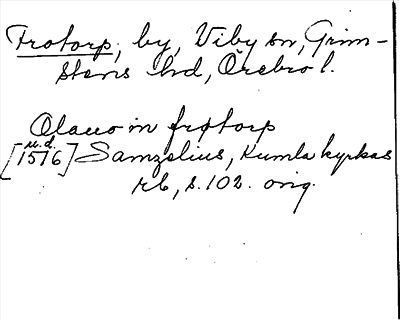 Frotorp, by, Viby sn, Grim-
stens hd, Örebro l.
Olauo in frotorp
u.d.
[1576] Samzelius, Kumla kyrkas
rb, s. 102. orig.